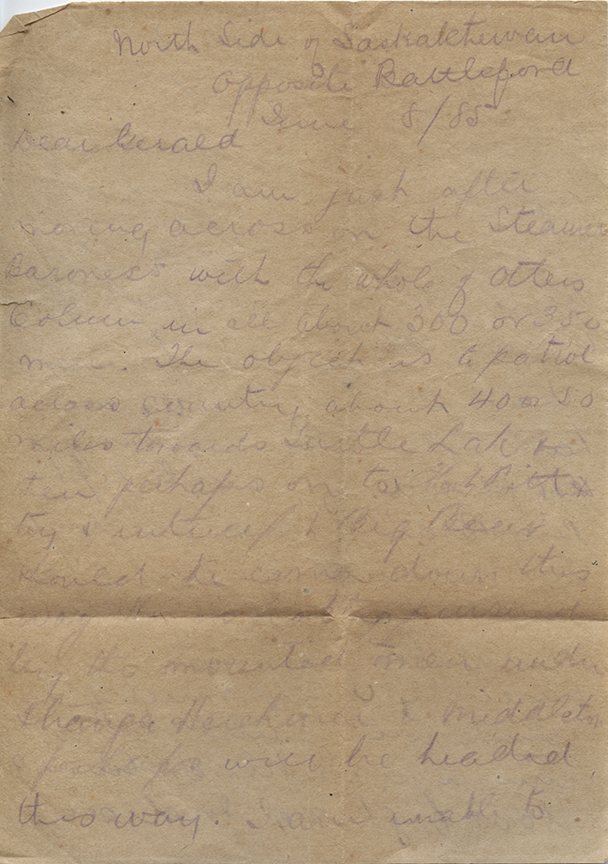 North Side of Saskatchewan
Opposite Battleford
June 8/85
Dear Gerald
I am just after
moving across on the Steamer
Baroness with the whole of Otters
Column in all about 300 or 350
men. The object is to patrol
across country about 40 or 50
miles towards Turtle Lake
perhaps on to Fort Pitt to
try & intercept Big Bear
should he come down this
way
by the mounted men under
Strange Herchmer & Middleton
will be headed
this way. I am unable to